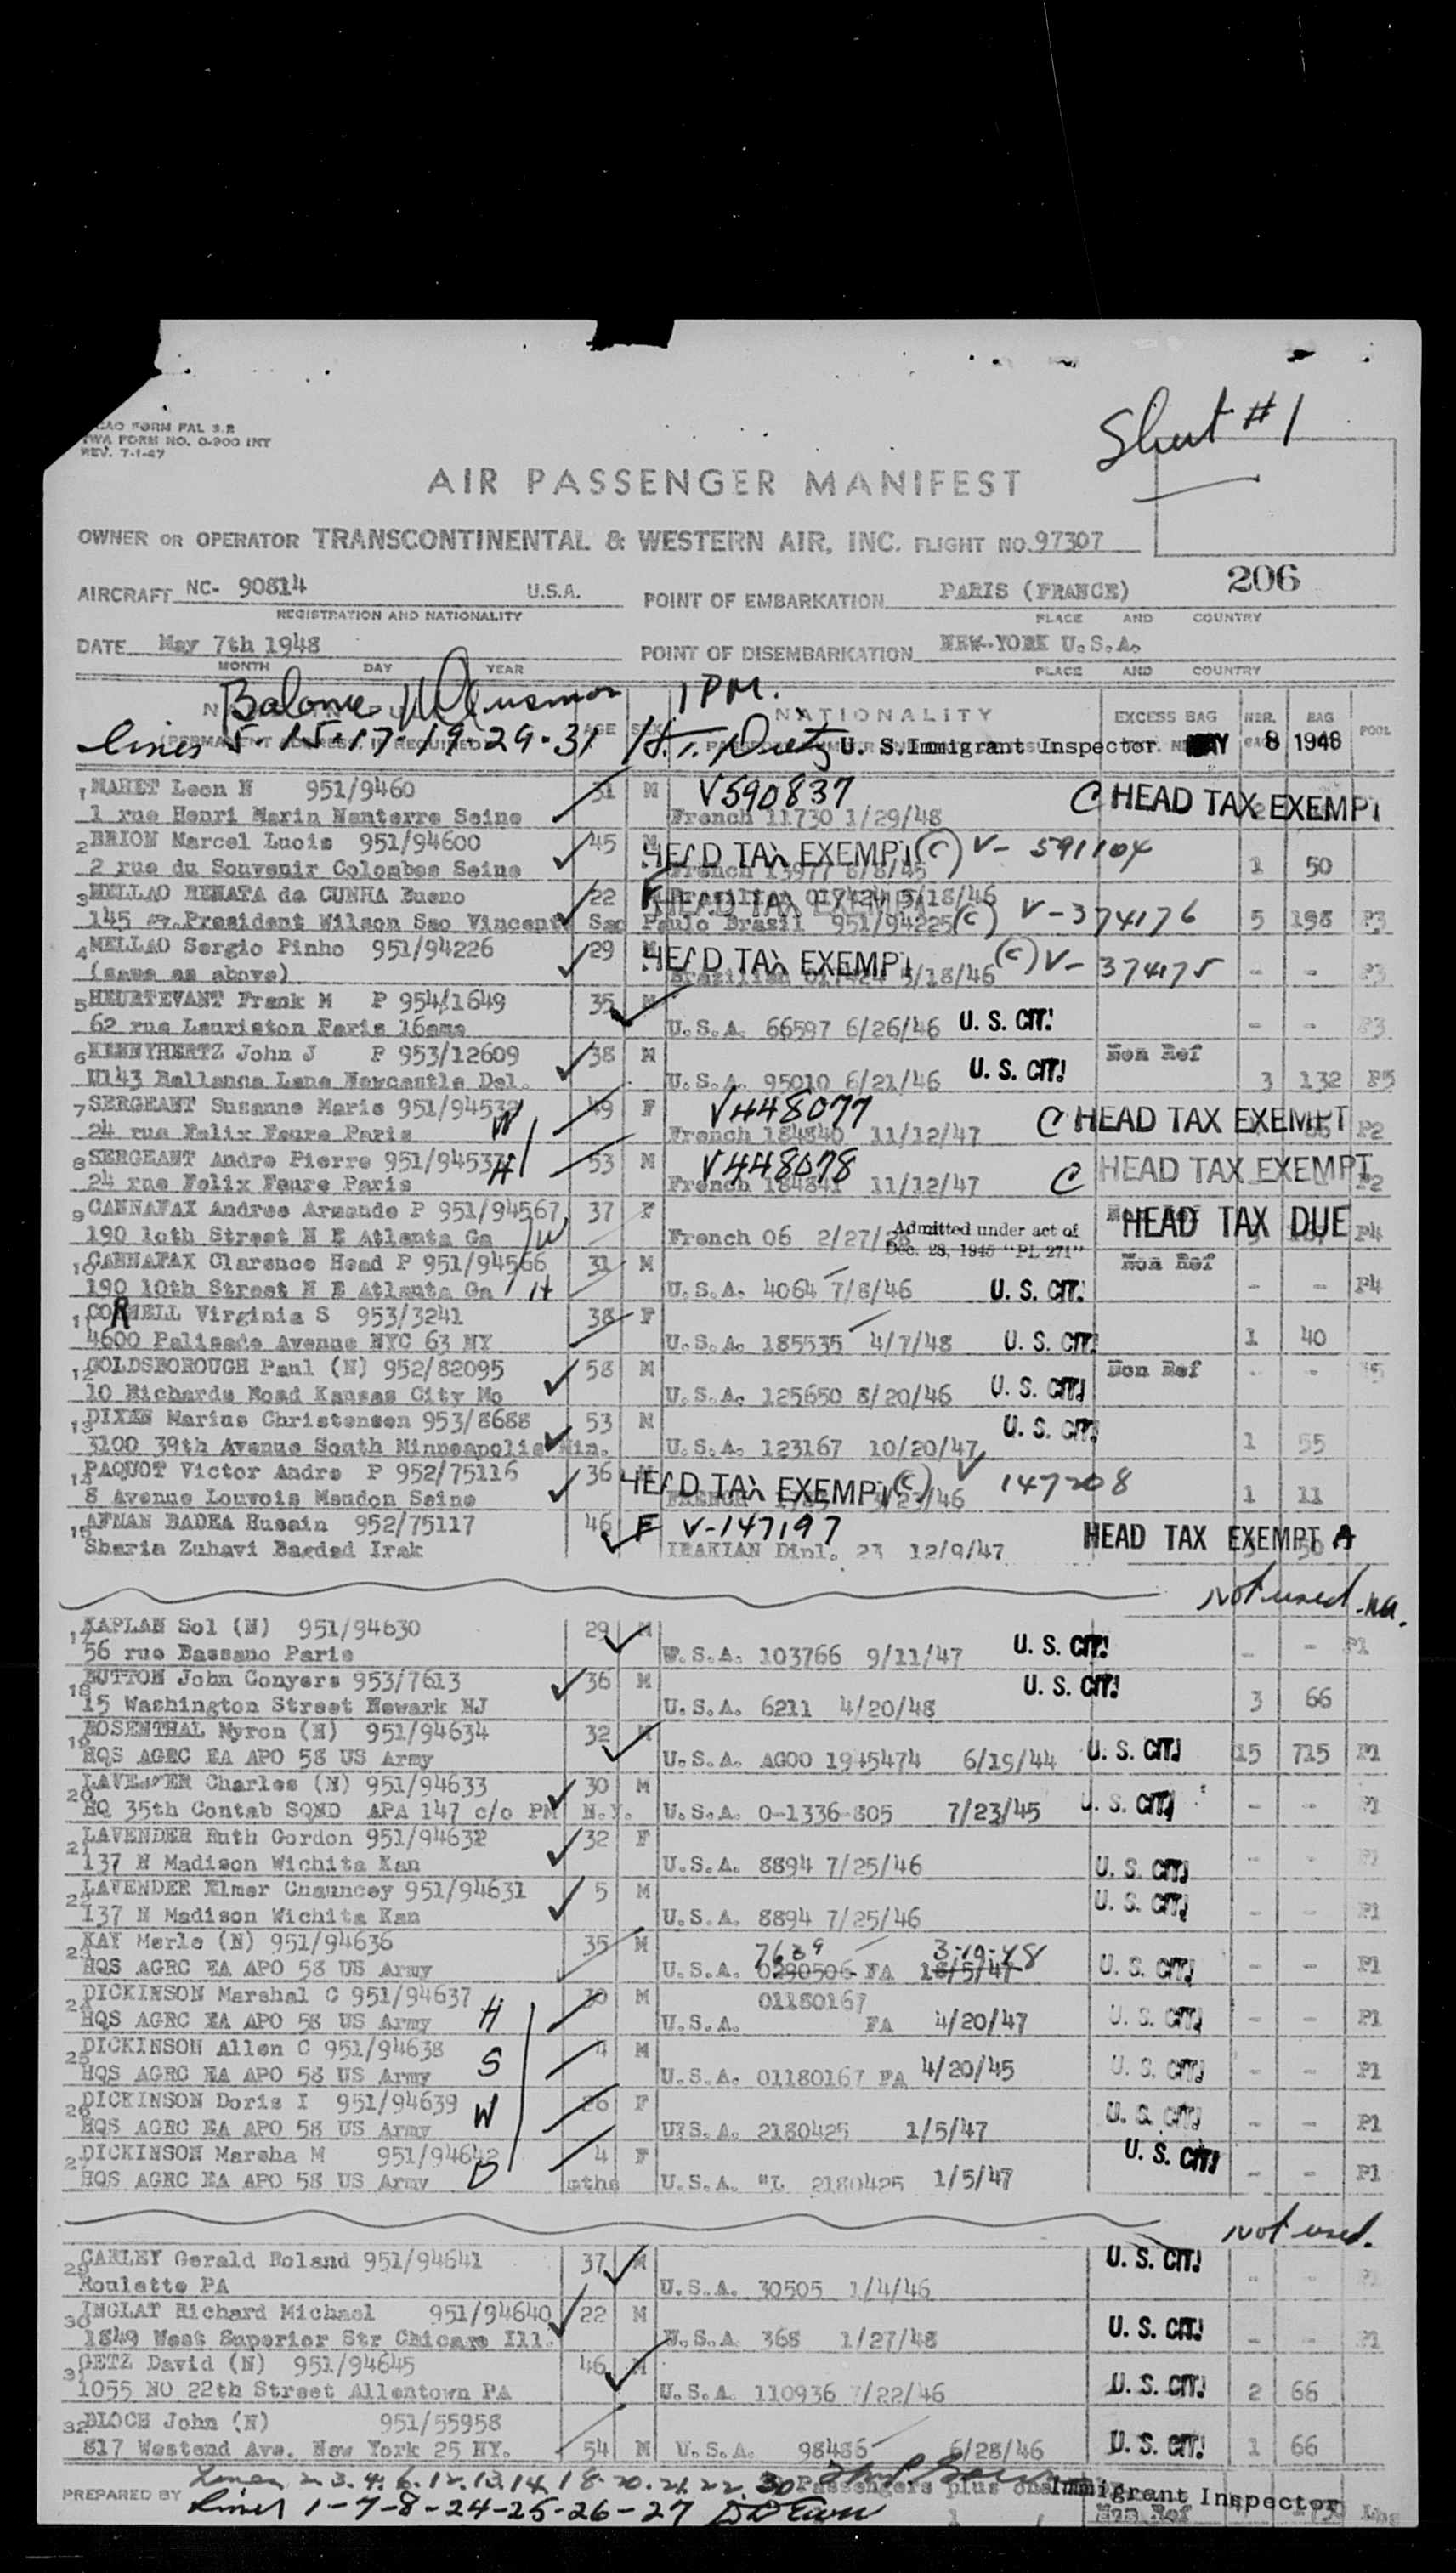 ICAO FORM FAL 3.2
TWA FORM NO. 0-900 INT
REV. 7-1-47
Sheet #1
AIR PASSENGER MANIFEST
OWNER OR OPERATOR TRANSCONTINENTAL & WESTERN AIR, INC. FLIGHT NO. 97307
206
AIRCRAFT NC- 90814 U.S.A. POINT OF EMBARKATION PARIS (FRANCE)
REGISTRATION AND NATIONALITY PLACE AND COUNTRY
DATE May 7th 1948 POINT OF DISEMBARKATION NEW-YORK U.S.A.
MONTH DAY YEAR PLACE AND COUNTRY
1 PM.
NATIONALITY EXCESS BAG NBR. BAG POOL
lines 5-15-17-19-29-31 AGE SEX U. S. Immigrant Inspector MAY 8 1948
(PERMANENT ADDRESS IF REQUIRED)
1 MAHET Leon N 951/9460 31 M V590837 C HEAD TAX EXEMPT
1 rue Henri Marin Nanterre Seine French 11730 1/29/48
2 BRION Marcel Lucis 951/94600 45 M HEAD TAX EXEMPT (C) V-591104
2 rue du Souvenir Colombes Seine French 13977 8/8/45 1 50
3 MELLAO RENATA da CUNHA Bueno 22 F Brasilian 017424 5/18/46 HEAD TAX EXEMPT
145 av. President Wilson Sao Vincente Sao Paulo Brasil 951/94225 (C) V-374176 5 198 P3
4 MELLAO Sergio Pinho 951/94226 29 M HEAD TAX EXEMPT (C) V-374175
(same as above) Brazilian 017424 5/18/46 - - P3
5 HEURTEVANT Frank M P 954/1649 35 M
62 rue Lauriston Paris 16eme U.S.A. 66597 6/26/46 U. S. CIT. - - P3
6 KENNYHERTZ John J P 953/12609 38 M U. S. CIT. Non Ref
M143 Hallanna Lane Newcastle Del. U.S.A. 95010 6/21/46 3 132 P5
7 SERGEANT Susanne Marie 951/94532 W 49 F V448077 C HEAD TAX EXEMPT
24 rue Felix Faure Paris French 184840 11/12/47 P2
8 SERGEANT Andre Pierre 951/94537 H 53 M V448078 C HEAD TAX EXEMPT
24 rue Felix Faure Paris French 184841 11/12/47 P2
9 CANNAFAX Andree Armande P 951/94567 37 F Admitted under act of HEAD TAX DUE
190 10th Street N E Atlanta Ga W French 06 2/27/28 Dec. 28, 1945 "PL 271" P4
10 CANNAFAX Clarence Head P 951/94566 31 M Non Ref
190 10th Street N E Atlanta Ga H U.S.A. 4064 7/8/46 U. S. CIT. - - P4
11 CORNELL Virginia S 953/3241 38 F
4600 Palisade Avenue NYC 63 NY U.S.A. 185535 4/7/48 U. S. CIT. 1 40
12 GOLDSBOROUGH Paul (N) 952/82095 58 M Non Ref - - P5
10 Richards Road Kansas City Mo U.S.A. 125650 8/20/46 U. S. CIT.
13 DIXEN Marius Christensen 953/8688 53 M U. S. CIT.
3100 39th Avenue South Minneapolis Min. U.S.A. 123167 10/20/47 1 55
14 PAQUOT Victor Andre P 952/75116 36 HEAD TAX EXEMPT (C) V 147208
8 Avenue Louvois Meudon Seine 1 11
15 AFNAN BADEA Husain 952/75117 46 F V-147197 HEAD TAX EXEMPT A
Sharia Zuhavi Bagdad Irak IRAKIAN Dipl. 23 12/9/47
Not used
17 KAPLAN Sol (N) 951/94630 29 M
56 rue Bassano Paris U.S.A. 103766 9/11/47 U. S. CIT. - - P1
18 HUTTON John Conyers 953/7613 36 M U. S. CIT.
15 Washington Street Newark NJ U.S.A. 6211 4/20/48 3 66
19 ROSENTHAL Myron (N) 951/94634 32 M
HQS AGRC EA APO 58 US Army U.S.A. AGOO 1945474 6/19/44 U. S. CIT. 15 715 P1
20 LAVENDER Charles (N) 951/94633 30 M
HQ 35th Contab SQND APA 147 c/o PM N.Y. U.S.A. O-1336-805 7/23/45 U. S. CIT. - - P1
21 LAVENDER Ruth Gordon 951/94632 32 F
137 N Madison Wichita Kan U.S.A. 8894 7/25/46 U. S. CIT. - - P1
22 LAVENDER Elmer Chauncey 951/94631 5 M U. S. CIT.
137 N Madison Wichita Kan U.S.A. 8894 7/25/46 - - P1
23 KAY Merle (N) 951/94636 35 M 7639 3-19-48
HQS AGRC EA APO 58 US Army U.S.A. 0290506 FA 18/5/47 U. S. CIT. - - P1
24 DICKINSON Marshal C 951/94637 H 30 M 01180167
HQS AGRC EA APO 58 US Army U.S.A. FA 4/20/47 U. S. CIT. - - P1
25 DICKINSON Allen C 951/94638 S 4 M
HQS AGRC EA APO 58 US Army U.S.A. 01180167 FA 4/20/45 U. S. CIT. - - P1
26 DICKINSON Doris I 951/94639 W 26 F
HQS AGRC EA APO 58 US Army U.S.A. 2180425 1/5/47 U. S. CIT. - - P1
27 DICKINSON Marsha M 951/94642 D 4 F U. S. CIT.
HQS AGRC EA APO 58 US Army mths U.S.A. "L 2180425 1/5/47 - - P1
Not used.
29 CARLEY Gerald Roland 951/94641 37 M U. S. CIT.
Roulette PA U.S.A. 30505 1/4/46 - - P1
30 INGLAT Richard Michael 951/94640 22 M
1849 West Superior Str Chicago Ill. U.S.A. 368 1/27/48 U. S. CIT. - - P1
31 GETZ David (N) 951/94645 46 M
1055 NO 22th Street Allentown PA U.S.A. 110936 7/22/46 U. S. CIT. 2 66
32 BLOCH John (N) 951/55958
817 Westend Ave. New York 25 NY. 54 M U.S.A. 98486 6/28/46 U. S. CIT. 1 66
Lines 2. 3. 4. 6. 12. 13. 14. 18. 20. 21. 22. 30 Passengers plus one Immigrant Inspector
PREPARED BY Lines 1-7-8-24-25-26-27 Non Ref Lbs